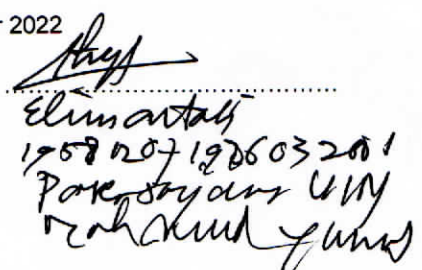 2022
Elimartati
19581207 198603 2001
Pascasarjana UIN
Mahmud Yunus